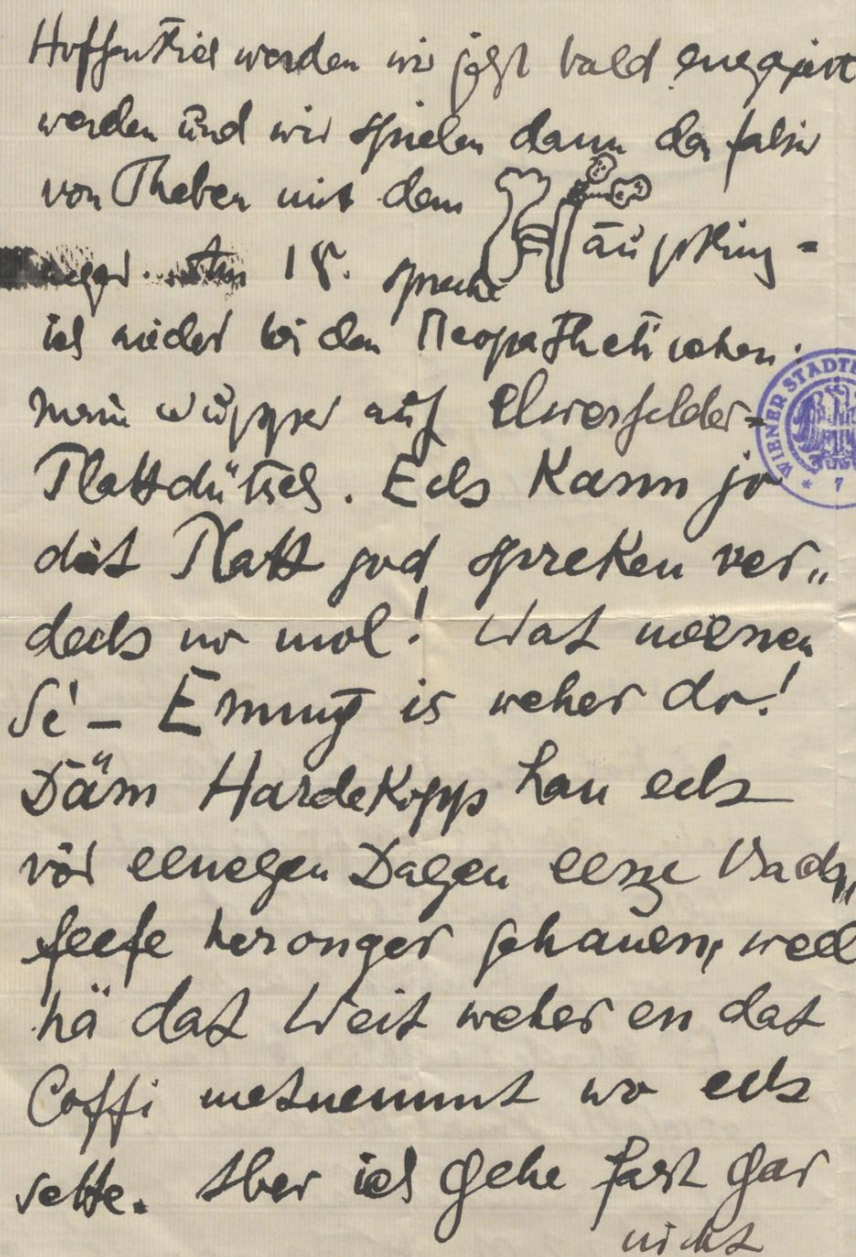 Hoffentlich werden wir jetzt bald engagirt
werden und wir spielen dann der fakir
von Theben mit dem
äuptling=
Am 18. spreche
ich wieder bei den Neopathetischen.
mein Wupper auf Elwerfelder=
Plattdütsch. Eck kann jo
dat Platt god spreken ver„
deck no mol! Wat meenen
Se! – Emmy is weher do!
Däm Hardekopp hau eck
vör eenegen Dagen eene Back„
feefe heronger gehauen, weil
hä dat Weit weher en dat
Caffi metnemmt wo eck
sette. Aber ich gehe fast gar
nicht
WIENER STADTB
* 7